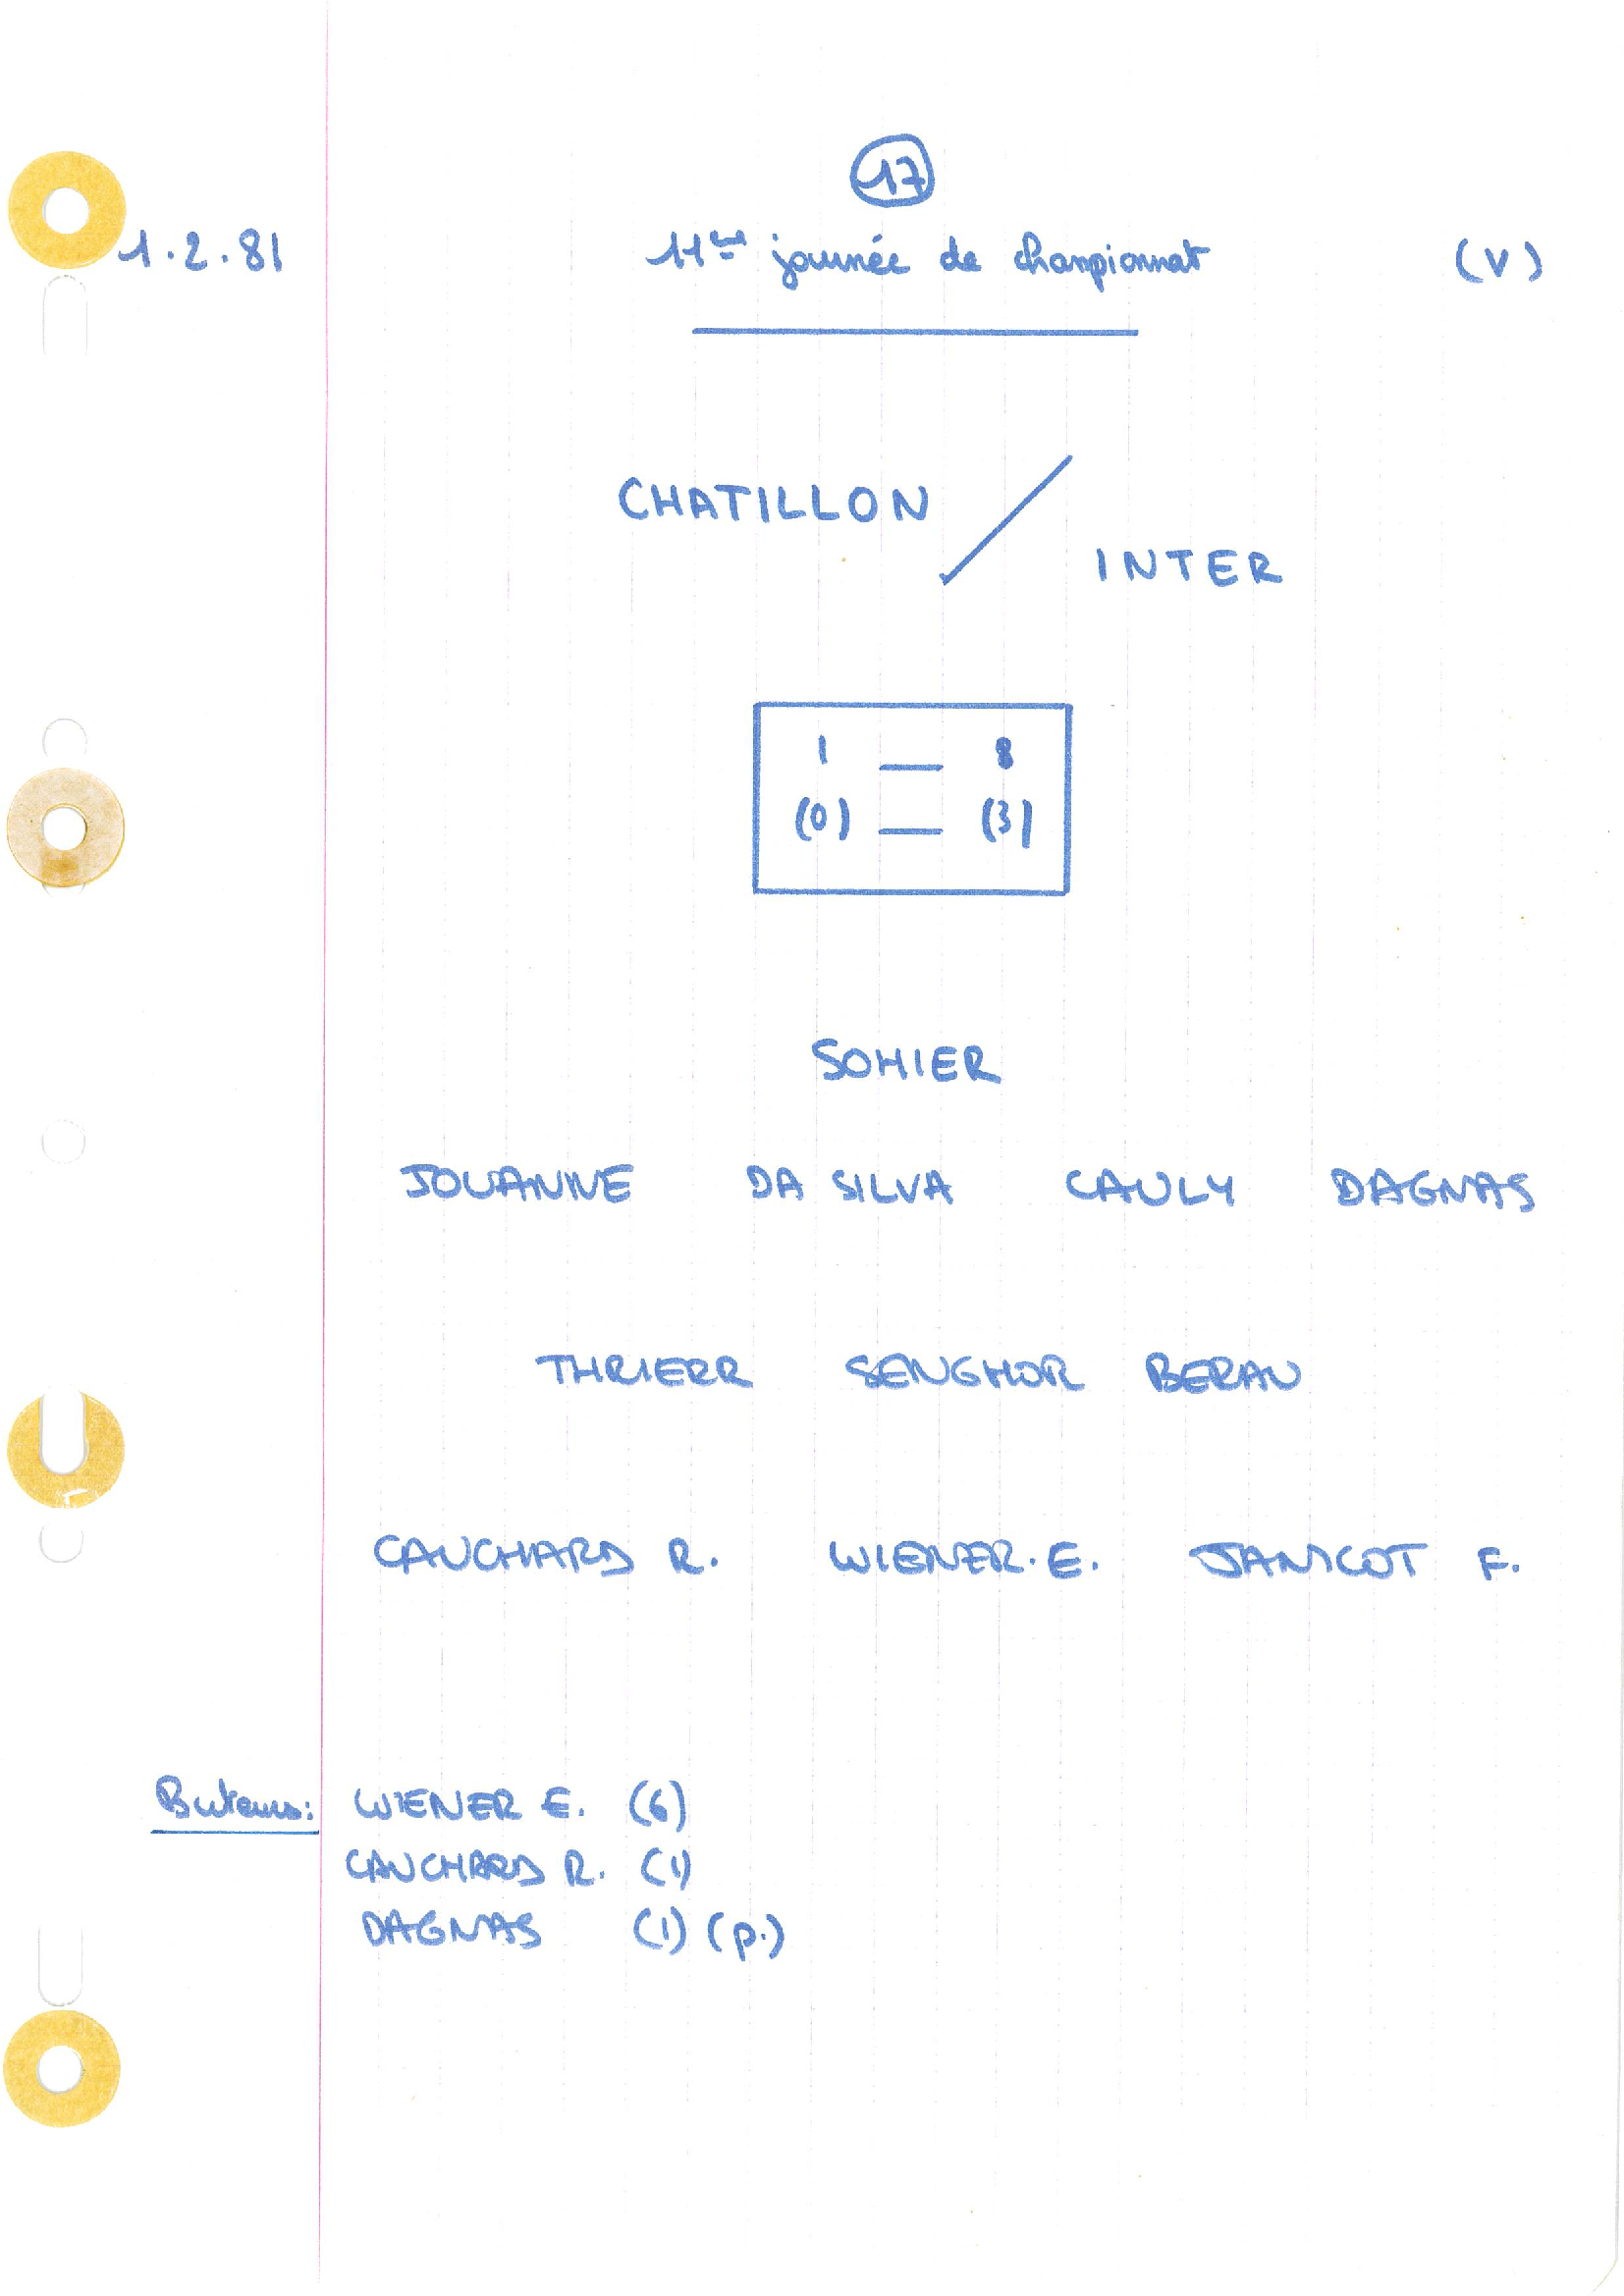 17
1.2.81 11ème journée de championnat (V)
CHATILLON
INTER
1 — 8
(0) — (3)
SOHIER
JOUANNE DA SILVA CAULY DAGNAS
THRIERR SENGHOR BERAU
CAUCHARD R. WIENER.E. JANICOT F.
Buteurs: WIENER E. (6)
CAUCHARD R. (1)
DAGNAS (1) (p.)